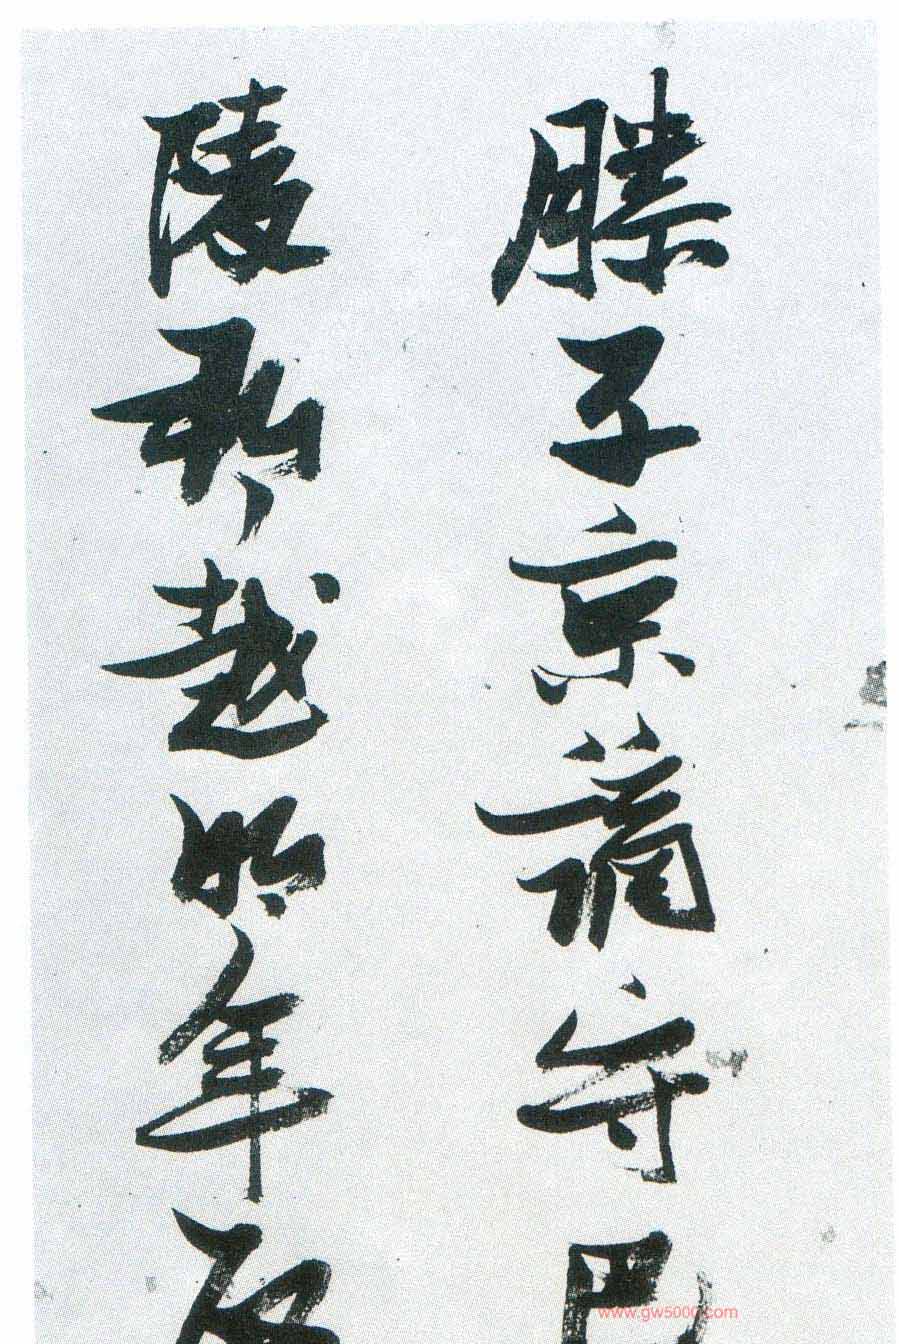 滕子京謫守巴
陵郡越明年
www.gw5000.com